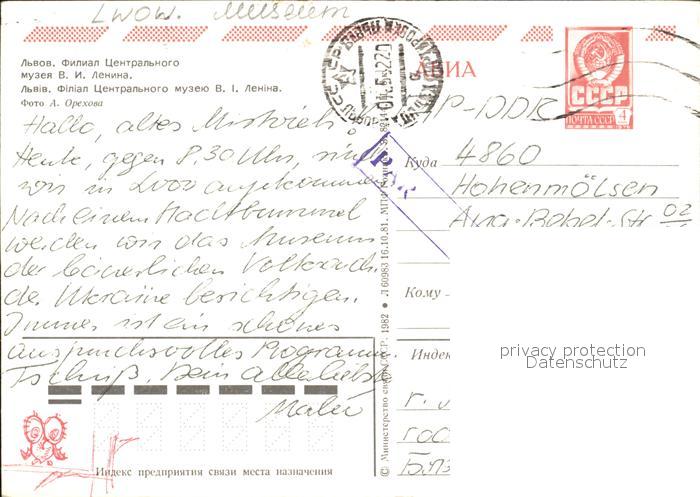 LWOW. Museum
Львов. Филиал Центрального
музея В. И. Ленина.
Львів. Філіал Центрального музею В. І. Леніна.
Фото А. Орехова
АВИА
СССР
ПОЧТА СССР 4
P-DDR
Hallo, altes
Heute gegen 8,30 Uhr, sind
wir in Lwow angekommen
Nach einem Stadtbummel
werden wir das Museum
der bäuerlichen
der Ukraine besichtigen.
Immer ist ein schönes
anspruchsvolles Programm.
Tschüß, Dein allerliebste
Куда 4860
Hohenmölsen
02
Кому
Индек
privacy protection
Datenschutz
г.
гос
Индекс предприятия связи места назначения
© Министерство связи СССР. 1982 • Л 60983 16.10.81. МПФ